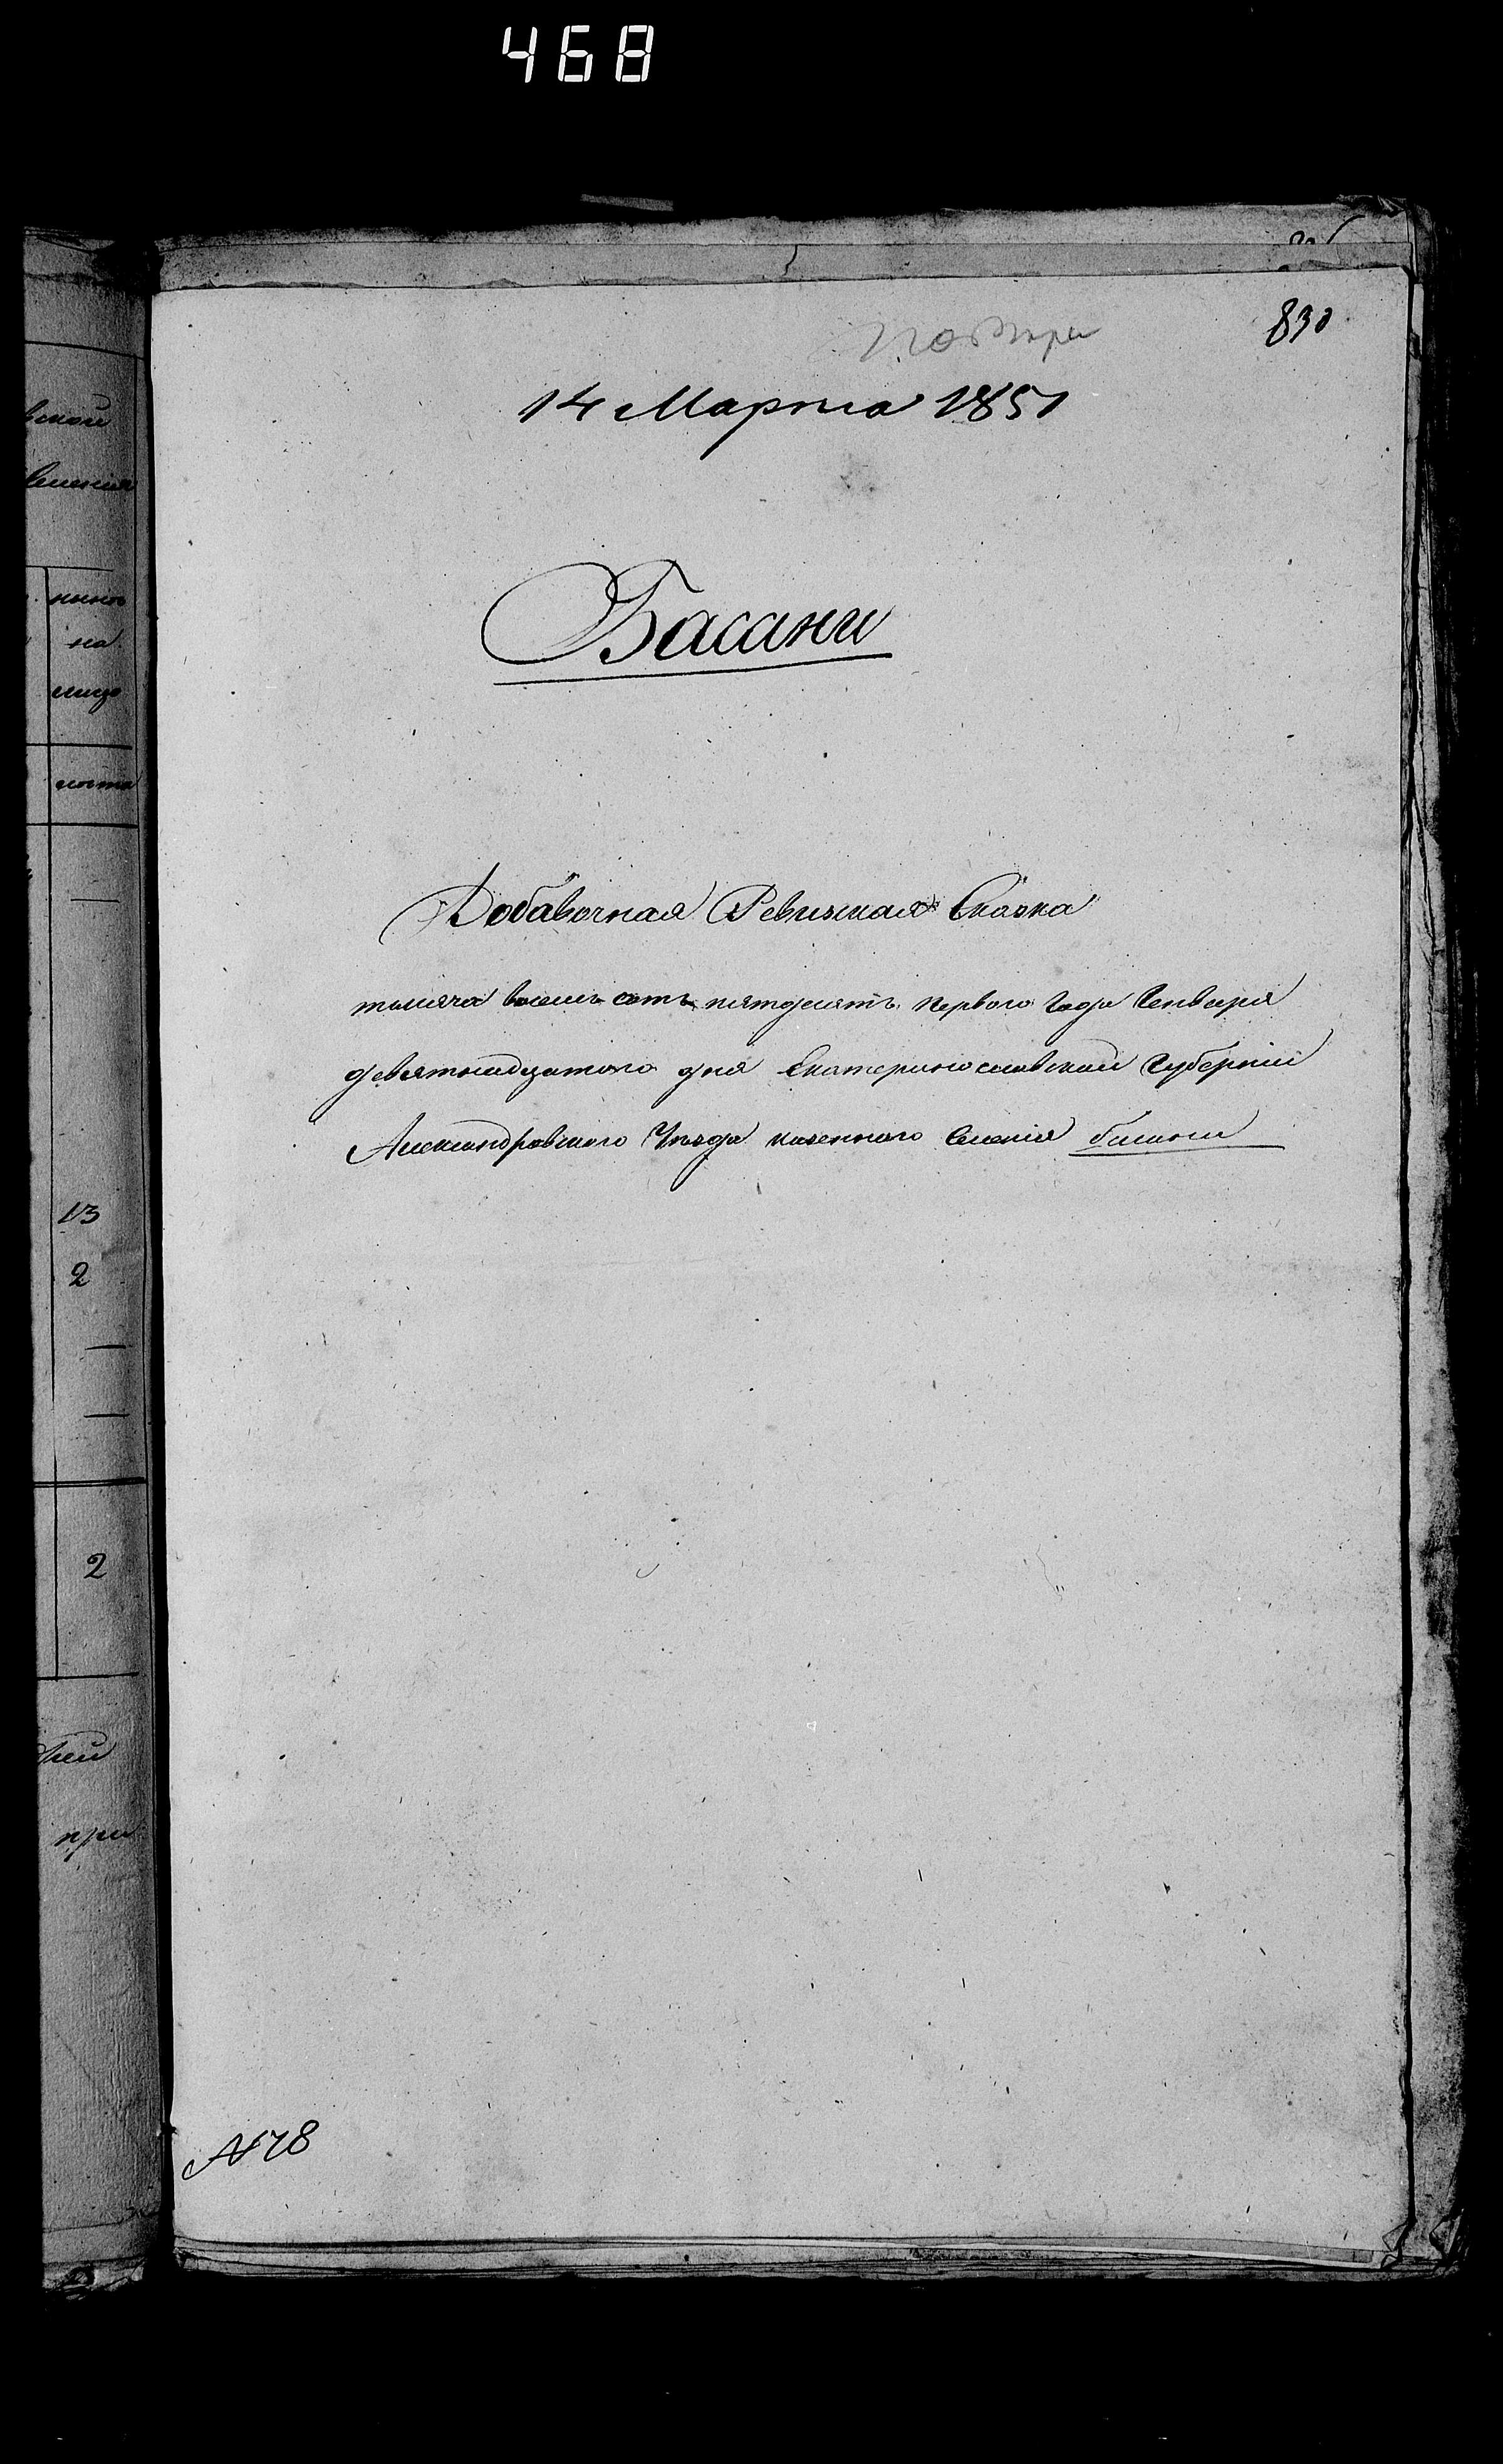 468
830
14 Марта 1851
Басани
Добавочная Ревизская Сказка
тысяча восемь сотъ пятдесятъ перваго Года Генваря
девятнадцатого дня Екатеринославской Губерніи
Александровского Уѣзда казенного Селенія басани
N 78
вской
селенія
нынѣ
на
лицо
лѣта
13
2
2
при